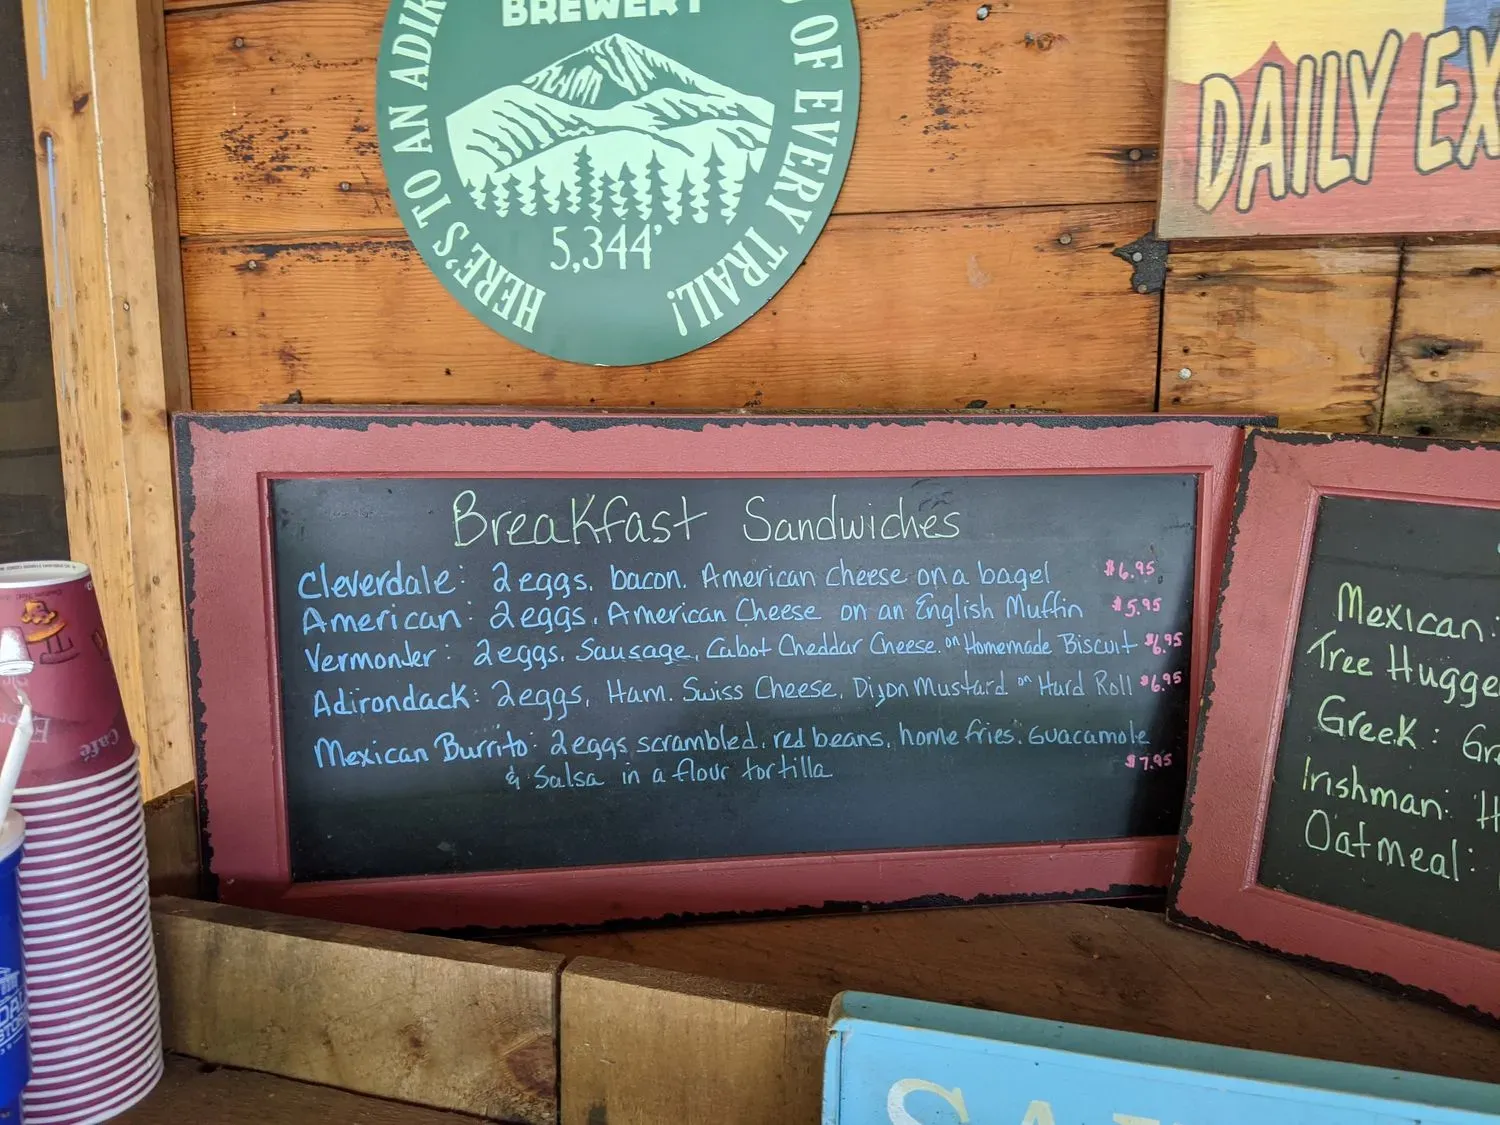 BREWERY
HERE'S TO AN ADIR
OF EVERY TRAIL!
5,344'
DAILY EX
Breakfast Sandwiches
Cleverdale: 2 eggs, bacon, American cheese on a bagel $6.95
American: 2 eggs, American Cheese on an English Muffin $5.95
Vermonter: 2 eggs, Sausage, Cabot Cheddar Cheese on Homemade Biscuit $6.95
Adirondack: 2 eggs, Ham, Swiss Cheese, Dijon Mustard on Hard Roll $6.95
Mexican Burrito: 2 eggs scrambled, red beans, home fries, Guacamole
& Salsa in a flour tortilla $7.95
Mexican:
Tree Hugge
Greek: Gr
Irishman: H
Oatmeal:
Café